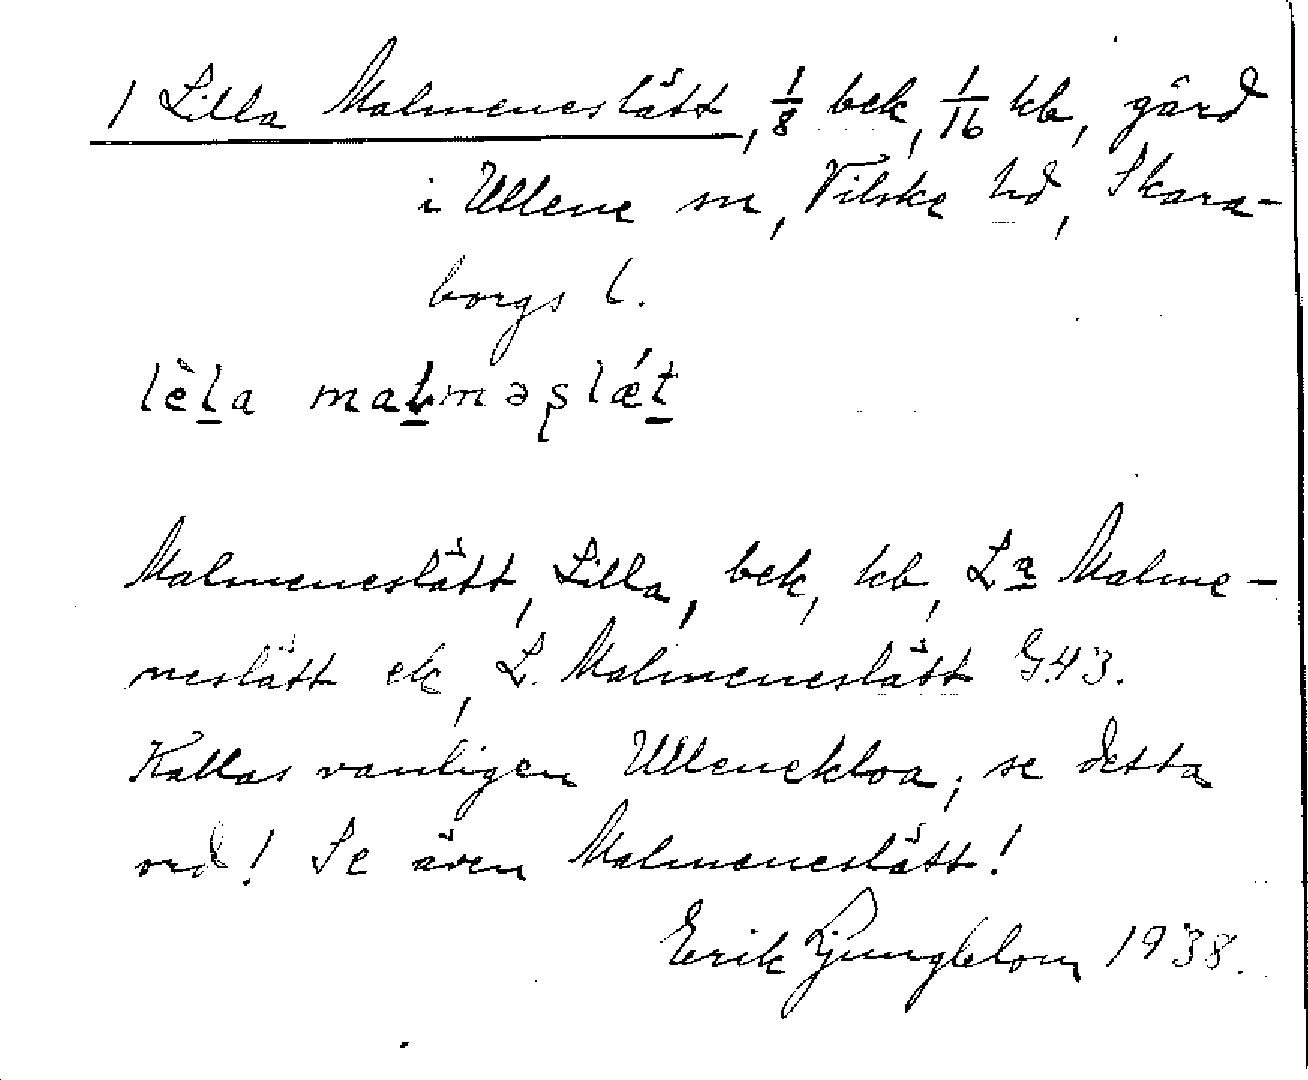 1 Lilla Malmeneslätt, 1/8 bek, 1/16 kb, gård
i Ullene sn, Vilske hd, Skara-
borgs l.
lèl̲a mal̲məʂlǽt̲
Malmeneslätt, Lilla, bek, kb, La Malme-
neslätt ek, L. Malmeneslätt G43.
Kallas vanligen Ulleneklva; se detta
ord! Se även Malmeneslätt!
Erik Ljungblom 1938.